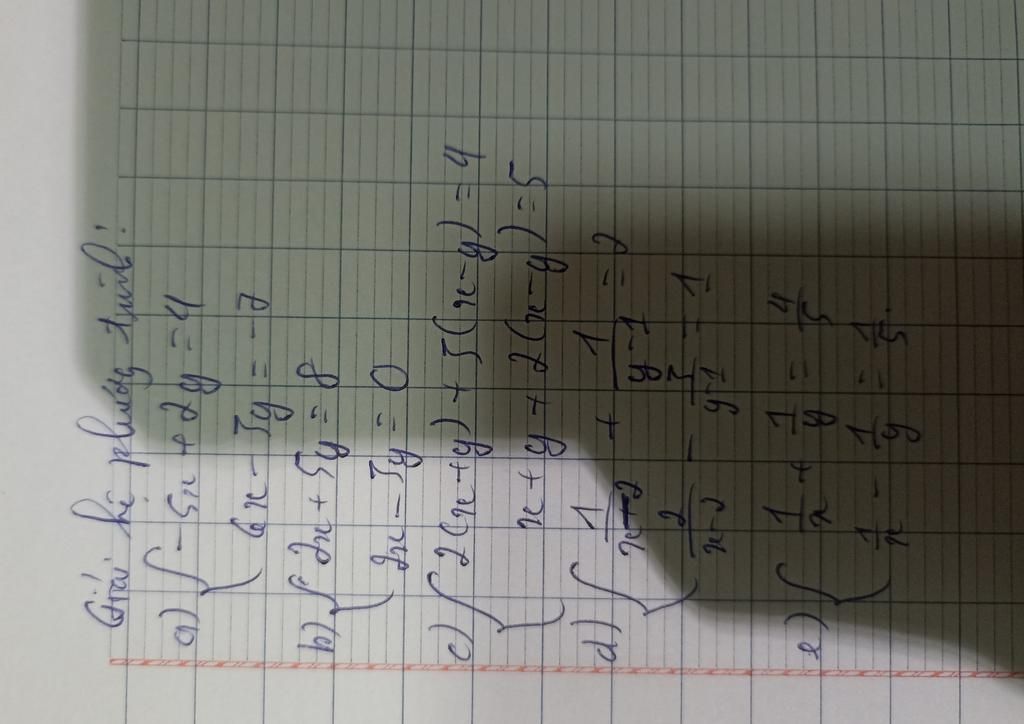 Giải hệ phương trình:
a) { -5x + 2y = 4
6x - 3y = -7
b) { 2x + 5y = 8
2x - 3y = 0
c) { 2(x+y) + 3(x-y) = 4
x+y + 2(x-y) = 5
d) { 1/(x-2) + 1/(y-1) = 2
2/(x-2) - 3/(y-1) = 1
e) { 1/x + 1/y = 4/5
1/x - 1/y = 1/5